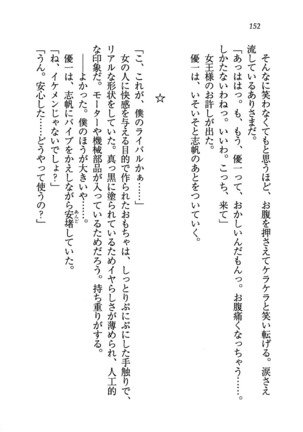 152
そんなに笑わなくてもと思うほど、お腹を押さえてケラケラと笑い転げる。涙さえ
流しているありさまだ。
「あっはは。も、もう、優一って、おかしいんだもんっ。お腹痛くなっちゃう……。
しかたないわねっ。いいわ。こっち、来て」
女王様のお許しが出た。
優一は、いそいそと志帆のあとをついていく。
☆
「こ、これが、僕のライバルかぁ……」
女の人に快感を与える目的で作られたおもちゃは、しっとりぷにぷにした手触りで、
リアルな形状をしていた。真っ黒に塗られているためイヤらしさが薄められ、人工的
な印象だ。モーターや機械部品が入っているためだろう。持ち重りがする。
――よかった。僕のほうが大きいや……。
優一は、志帆にバイブをかえしながら安堵していた。
あんど
「ね、イケメンじゃないでしょ？」
「うん。安心した……どうやって使うの？」